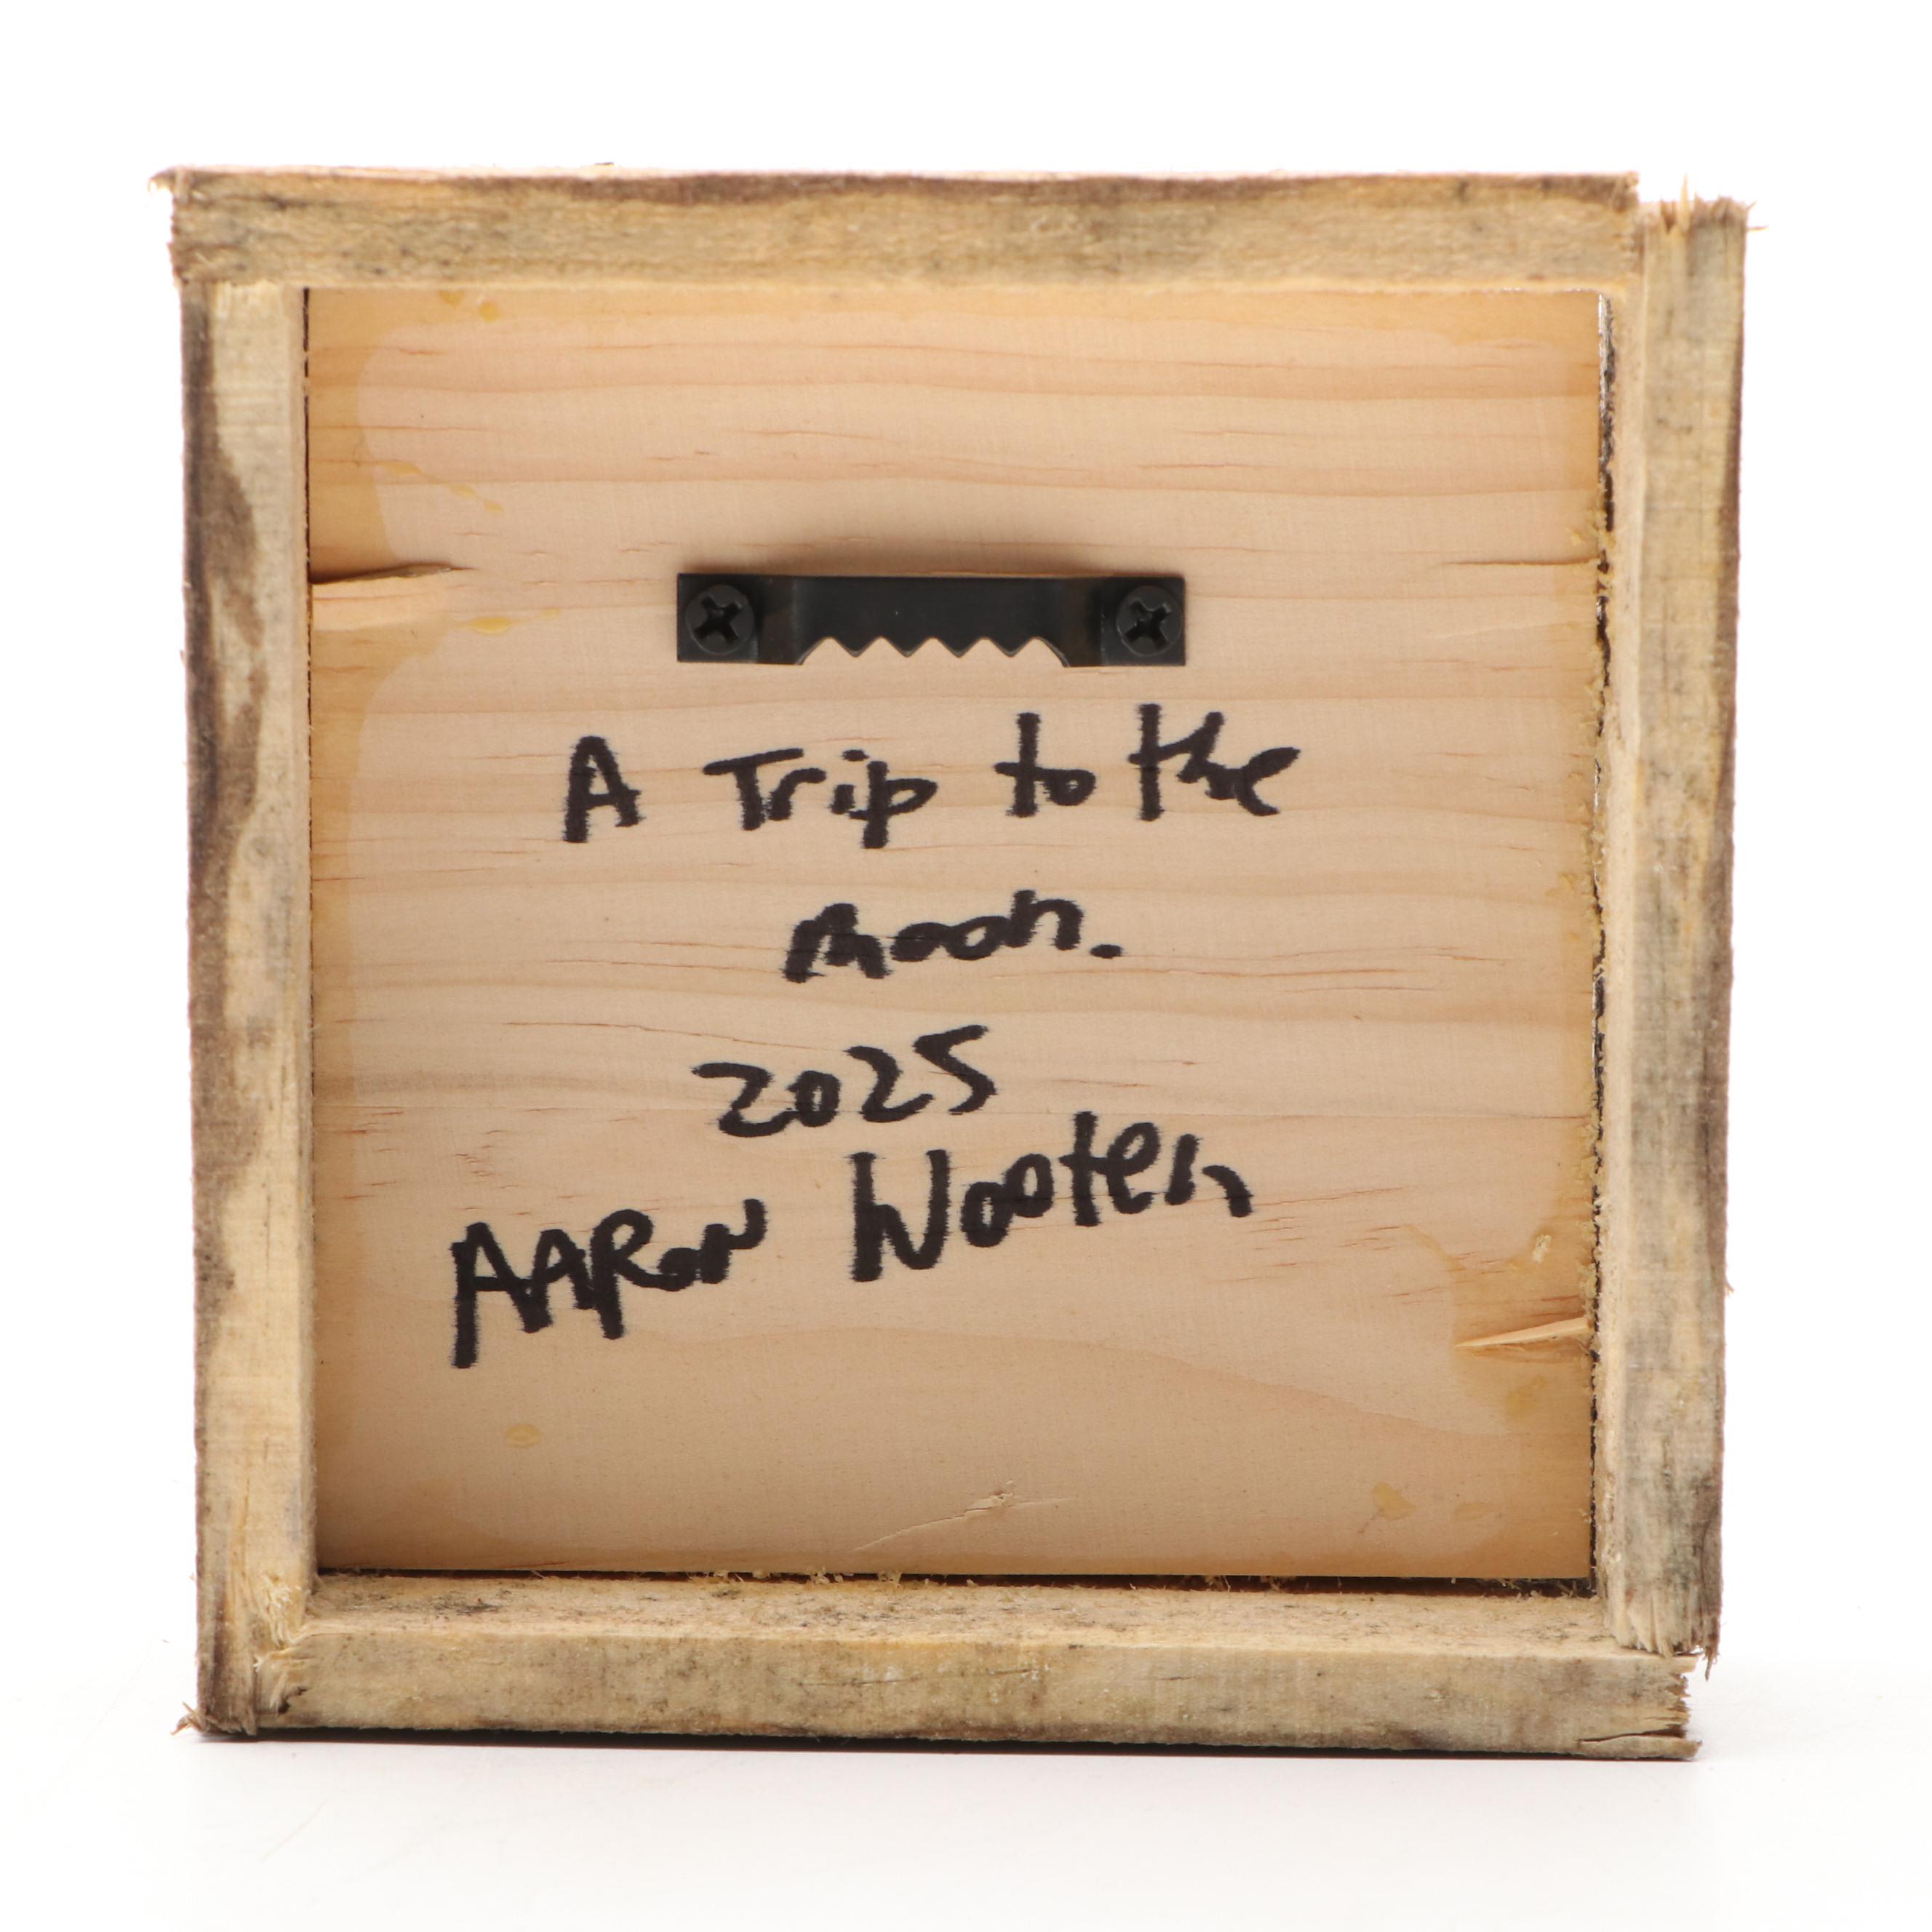 A Trip to the
Moon.
2025
AARON Wooten